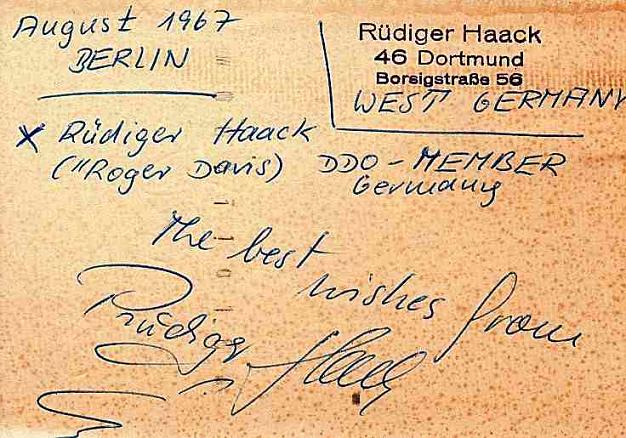 August 1967
BERLIN
Rüdiger Haack
46 Dortmund
Borsigstraße 56
WEST GERMANY
x Rüdiger Haack
("Roger Davis) DDO - MEMBER
Germany
The best
wishes from
Rüdiger Haack